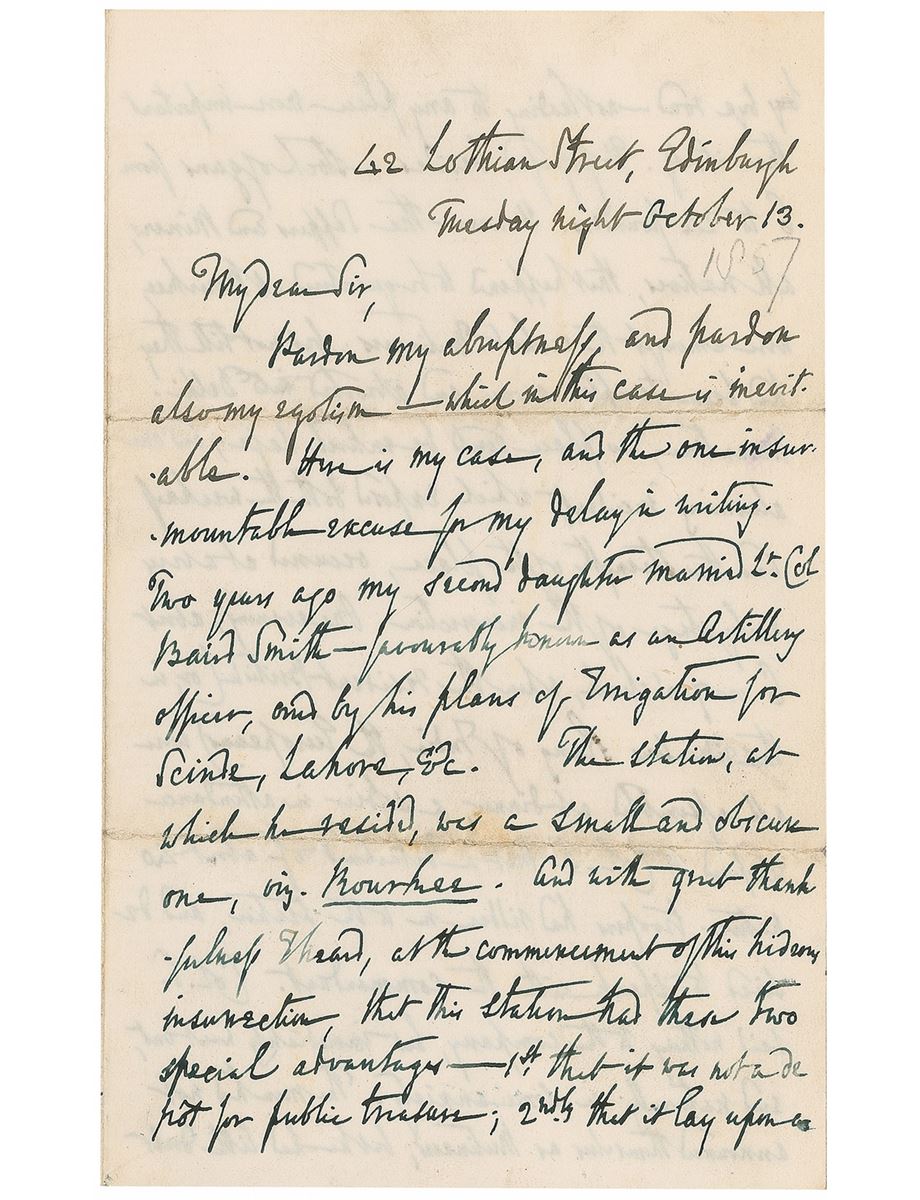 42 Lothian Street, Edinburgh
Tuesday night October 13.
1857
My dear Sir,
Pardon my abruptness, and pardon
also my egotism — which in this case is inevit-
-able. Here is my case, and the one insur-
-mountable excuse for my delay in writing.
Two years ago my second daughter married Lt. Col
Baird Smith — favourably known as an Artillery
officer, and by his plans of Irrigation for
Scinde, Lahore, &c. The station, at
which he resided, was a small and obscure
one, viz. Rourkee. And with great thank
-fulness I heard, at the commencement of this hideous
insurrection, that this station had these two
special advantages — 1st that it was not a de
pôt for public treasure; 2ndly that it lay upon a